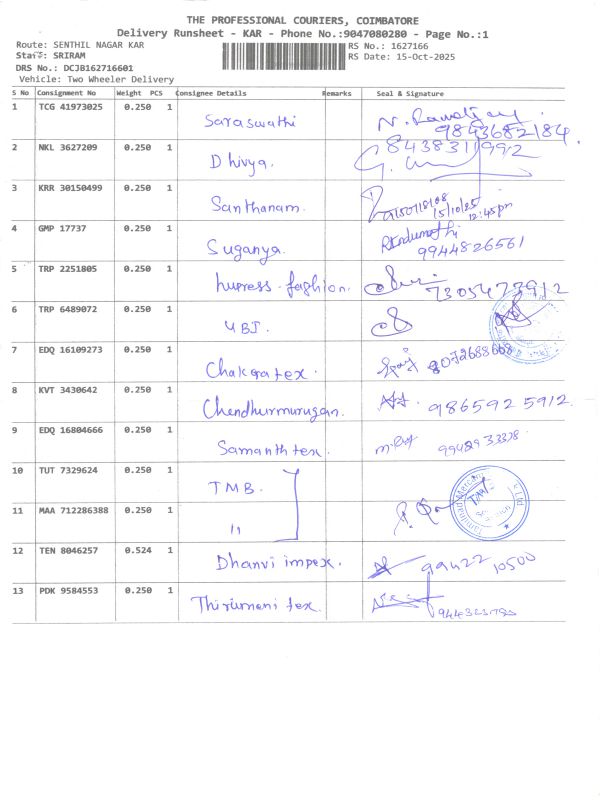 THE PROFESSIONAL COURIERS, COIMBATORE
Delivery Runsheet - KAR - Phone No.:9047080280 - Page No.:1
Route: SENTHIL NAGAR KAR RS No.: 1627166
Staff: SRIRAM RS Date: 15-Oct-2025
DRS No.: DCJB162716601
Vehicle: Two Wheeler Delivery
S No Consignment No Weight PCS Consignee Details Remarks Seal & Signature
1 TCG 41973025 0.250 1 Saraswathi 9843682184
2 NKL 3627209 0.250 1 Dhivya. 8438311992
3 KRR 30150499 0.250 1 Santhanam. 15/10/25
12:45pm
4 GMP 17737 0.250 1 Suganya. 9944826561
5 TRP 2251805 0.250 1 hupress fashion. 7305473912
6 TRP 6489072 0.250 1 UBI.
7 EDQ 16109273 0.250 1 Chakratex.
8 KVT 3430642 0.250 1 Chendhurmurugan. 9865925912
9 EDQ 16804666 0.250 1 Samanth tex.
10 TUT 7329624 0.250 1 TMB.
11 MAA 712286388 0.250 1 "
12 TEN 8046257 0.524 1 Dhanvi impex. 99422 10500
13 PDK 9584553 0.250 1 Thirumani tex.